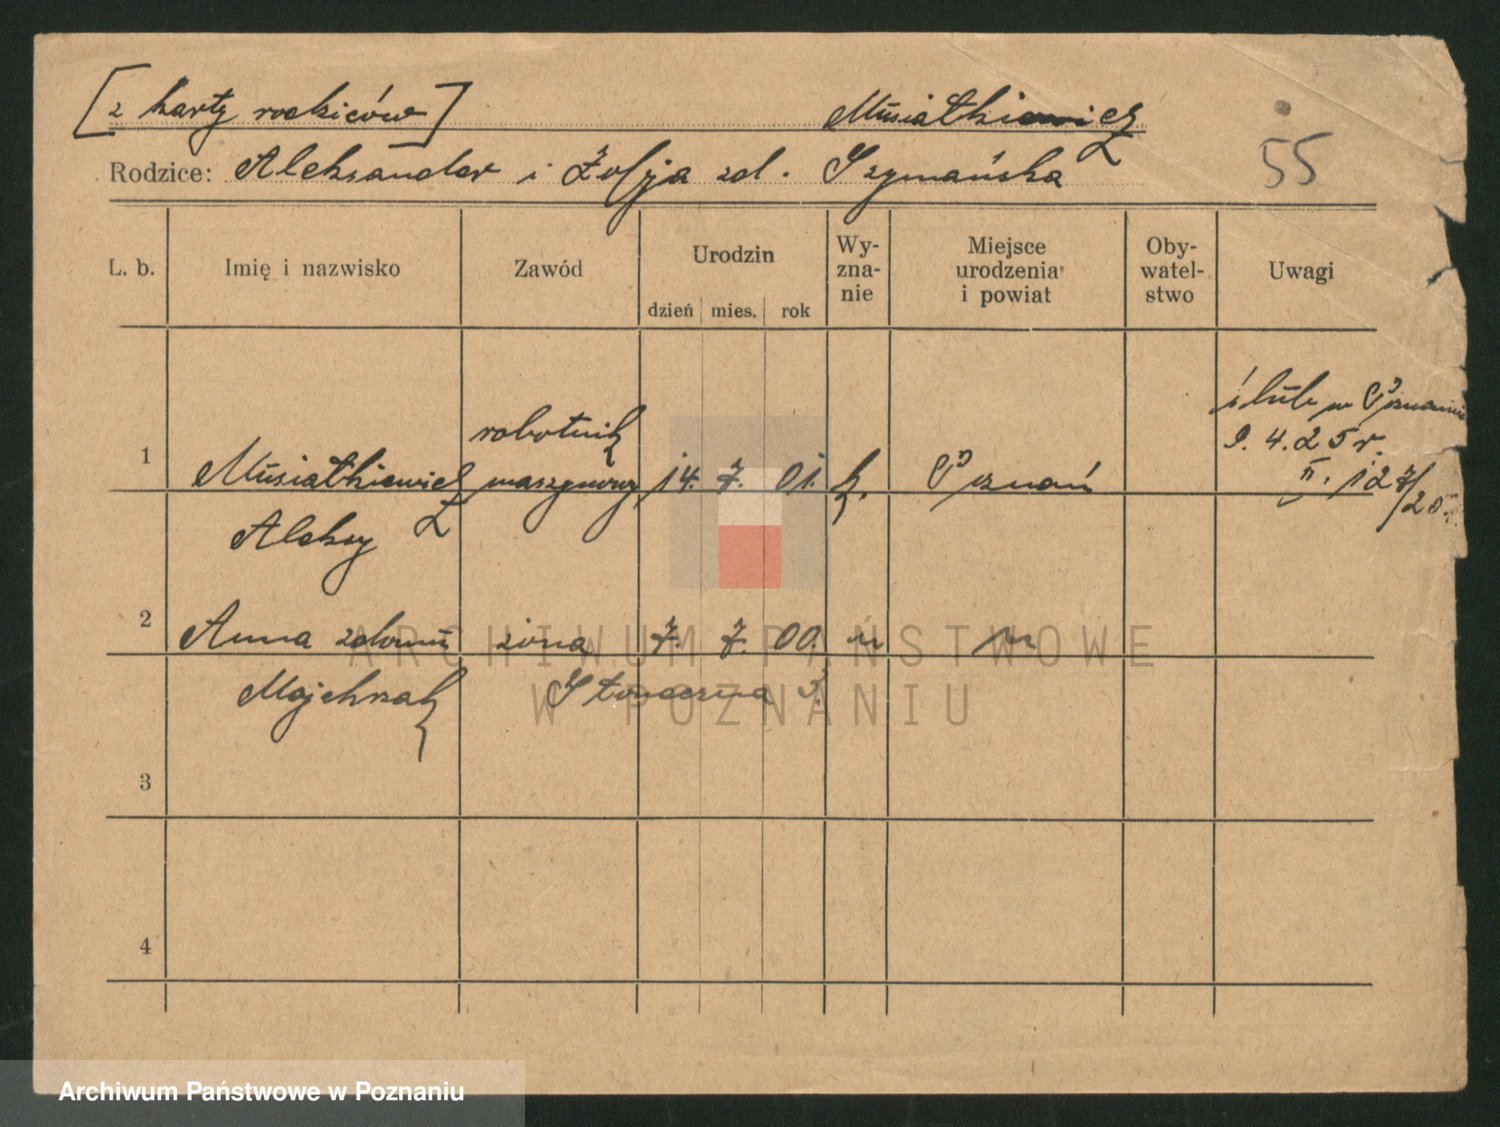 [z karty rodziców] Musiałkiewicz
Rodzice: Aleksander i Zofja zd. Szymańska
55
L. b. Imię i nazwisko Zawód Urodzin dzień mies. rok Wy-zna-nie Miejsce urodzenia i powiat Oby-watel-stwo Uwagi
ślub w Poznaniu
9. 4. 25 r.
robotnik
1 Musiałkiewicz maszynowy 14. 7. 01. k. Poznań II. 127/25
Aleksy
2 Anna z domu żona 7. 7. 00. " "
Majchrzak
3
4
ARCHIWUM PAŃSTWOWE
W POZNANIU
Archiwum Państwowe w Poznaniu